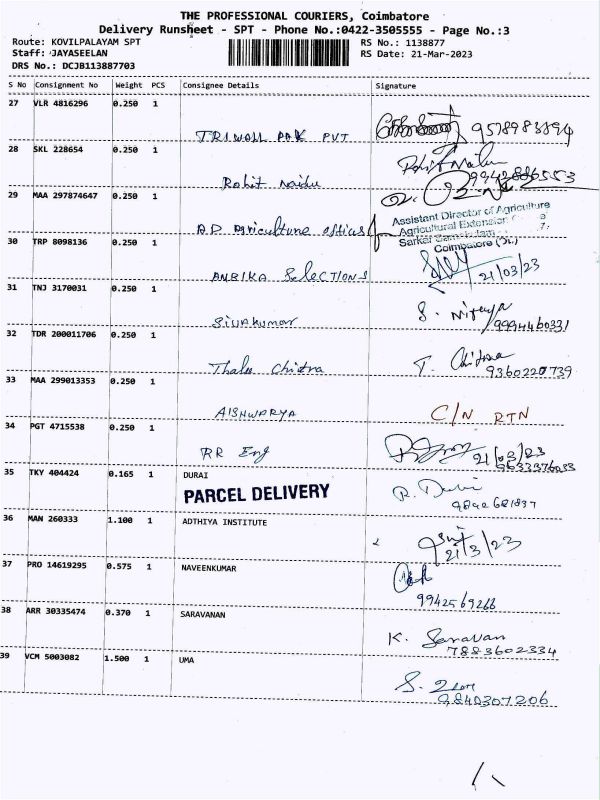 THE PROFESSIONAL COURIERS, Coimbatore
Delivery Runsheet - SPT - Phone No.:0422-3505555 - Page No.:3
Route: KOVILPALAYAM SPT
RS No.: 1138877
Staff: JAYASEELAN
RS Date: 21-Mar-2023
DRS No.: DCJB113887703
S No Consignment No Weight PCS Consignee Details Signature
27 VLR 4816296 0.250 1
TRIWALL PAK PVT 9578983894
28 SKL 228654 0.250 1
Rohit Naidu
29 MAA 297874647 0.250 1
A.D. Agriculture office
Assistant Director of Agriculture
Agricultural Extension
Coimbatore (Dt.)
30 TRP 8098136 0.250 1
AMBIKA Selections 21/03/23
31 TNJ 3170031 0.250 1
Sivakumar S. Nithya
9994460331
32 TDR 200011706 0.250 1
Chitra T. Chitra
9360220739
33 MAA 299013353 0.250 1
AISHWARYA C/N RTN
34 PGT 4715538 0.250 1
RR Eng 21/03/23
35 TKY 404424 0.165 1 DURAI
PARCEL DELIVERY R. Devi
36 MAN 260333 1.100 1 ADTHIYA INSTITUTE
21/3/23
37 PRO 14619295 0.575 1 NAVEENKUMAR
9942569266
38 ARR 30335474 0.370 1 SARAVANAN
K. Saravan
7883602334
39 VCM 5003082 1.500 1 UMA
9840307206